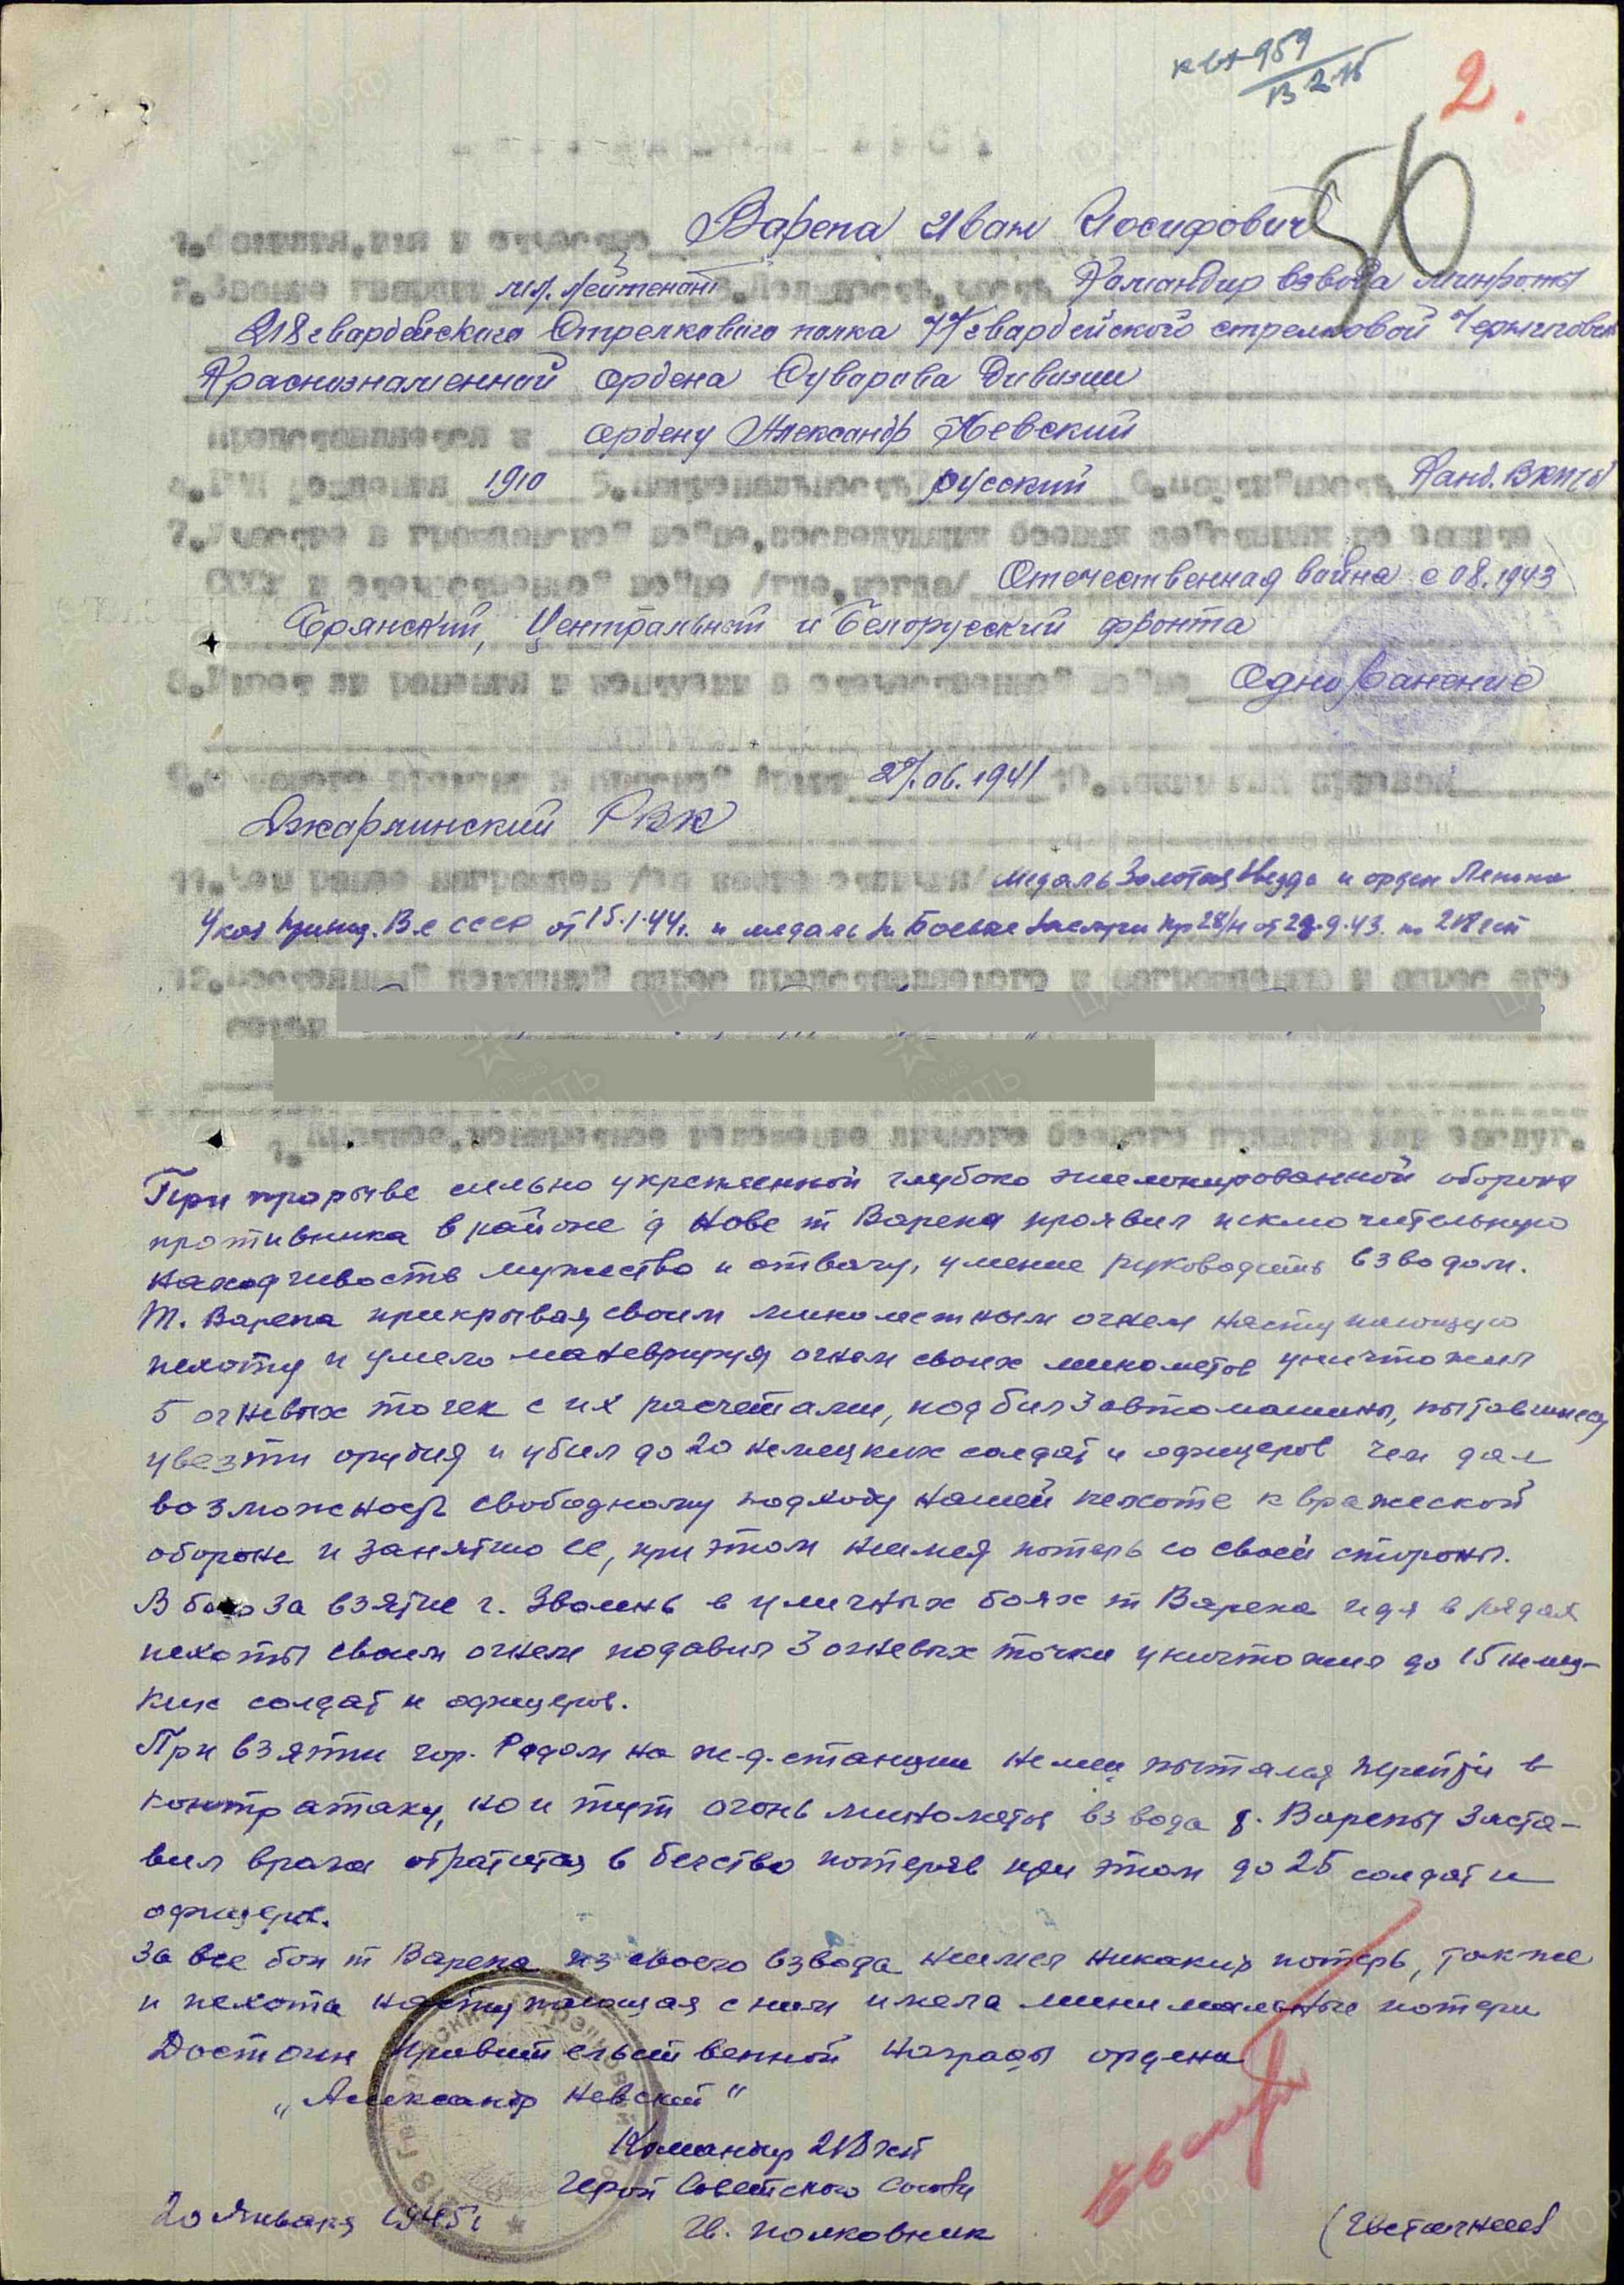 2.
50
1. Фамилия, имя и отчество Варепа Иван Иосифович
2. Звание гвардии мл. лейтенант 3. Должность, часть Командир взвода минроты
218 гвардейского Стрелкового полка 77 гвардейского стрелковой Черниговск
Краснознаменной ордена Суворова Дивизии
Представляется к ордену Александр Невский
4. Год рождения 1910 5. национальность русский 6. партийность Канд. ВКП(б)
7. Участие в гражданской войне, последующих боевых действиях по защите
СССР и отечественной войне /где, когда/ Отечественная война с 08.1943
Брянский, Центральный и Белорусский фронта
8. Имеет ли ранения и контузии в отечественной войне Одно ранение
9. С какого времени в Красной Армии 27.06.1941 10. каким РВК призван
Джарминский РВК
11. Чем ранее награжден /за какие отличия/ медаль Золотая Звезда и орден Ленина
Указ Презид. В.С СССР от 15.1.44г. и медаль За Боевые Заслуги пр 28/н от 29.9.43. по 218 гсп
12. Постоянный домашний адрес представляемого к награждению и адрес его
семьи
1. Краткое, конкретное изложение личного боевого подвига или заслуг.
При прорыве сильно укрепленной глубоко эшелонированной обороны
противника в районе д Нове т Варепа проявил исключительную
находчивость мужество и отвагу, умение руководить взводом.
Т. Варепа прикрывая своим минометным огнем наступающую
пехоту и умело маневрируя огнем своих минометов уничтожил
5 огневых точек с их расчетами, подбил 3 автомашины, пытавшиеся
увезти орудия и убил до 20 немецких солдат и офицеров чем дал
возможность свободному подходу нашей пехоте к вражеской
обороне и занятию ее, при этом не имея потерь со своей стороны.
В бою за взятие г. Зволень в уличных боях т Варепа идя в рядах
пехоты своим огнем подавил 3 огневых точки уничтожил до 15 немец-
ких солдат и офицеров.
При взятии гор. Радом на ж.д. станции немец пытался перейти в
контратаку, но и тут огонь минометов взвода т. Варепы заста-
вил врага обратится в бегство потеряв при этом до 25 солдат и
офицеров.
За все бои т Варепа из своего взвода не имел никаких потерь, также
и пехота наступающая с ним имела минимальные потери
Достоин правительственной награды ордена
„Александр Невский"
Командир 218 гсп
Герой Советского Союза
20 Января 1945г Гв. полковник